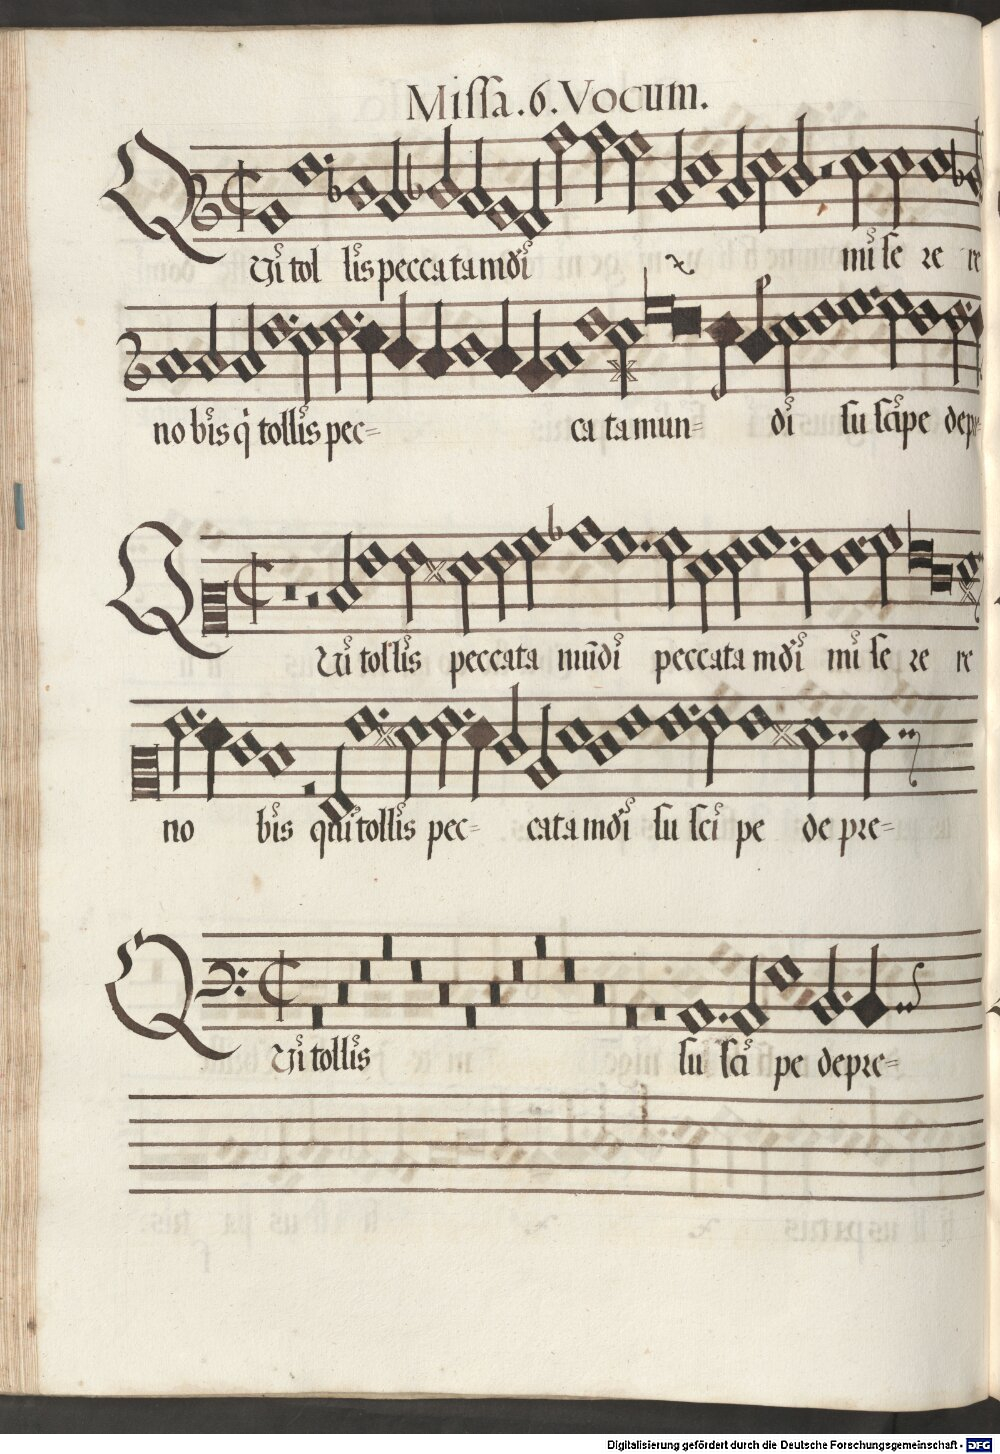 Missa.6.Vocum.
Qui tol lis peccata mūdi mise re re
nobis q tollis pec= ca tamun= di suscipe depre
Qui tollis peccata mūdi peccata mūdi mise re re
no bis qui tollis pec= cata mūdi su sci pe de pre=
Qui tollis su sci pe depre=
Digitalisierung gefördert durch die Deutsche Forschungsgemeinschaft - DFG